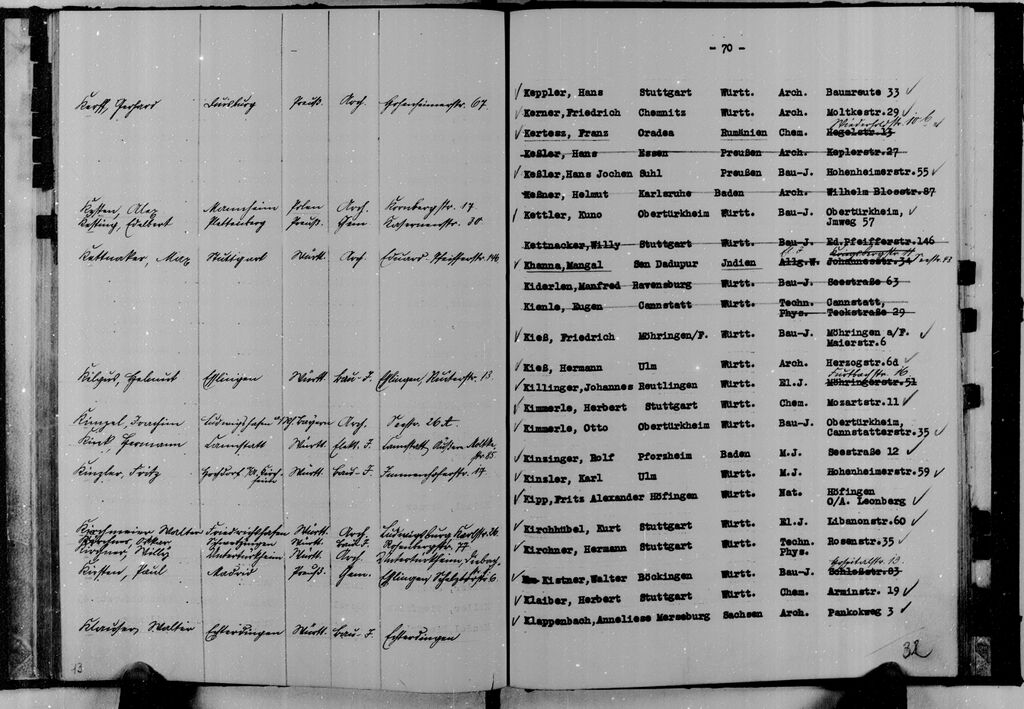 Kerff, Gerhard Duisburg Preuß. Arch. Hohenheimerstr. 67
Kesten, Alex Mannheim Polen Arch. Kornbergstr. 17
Kesting, Edelbert Plettenberg Preuß. Chem. Kasernenstr. 30
Kettnaker, Max Stuttgart Württ. Arch. Eduard-Pfeifferstr. 146
Kilgus, Helmut Eßlingen Württ. Bau-J. Eßlingen, 13
Kinzel, Joachim Ludwigshafen a/Rh. Bayern Arch. Seestr. 26
Kink, Hermann Cannstatt Württ. Elekt. J. Cannstatt, Moltke-
str. 85
Kinzler, Fritz Württ. Bau-J. Immenhoferstr. 17
Kirchmeier Walter Friedrichshafen Württ. Arch. Ludwigsburg
Kirchner, Württ. Bau-J. Rosenbergstr. 77
Kirchner, Willy Untertürkheim Württ. Arch. Untertürkheim,
Kirsten, Paul Madrid Preuß. Chem. Eßlingen, 6
Klauser, Walter Echterdingen Württ. Bau-J. Echterdingen
13
- 70 -
Keppler, Hans Stuttgart Württ. Arch. Baumreute 33
Kerner, Friedrich Chemnitz Württ. Arch. Moltkestr. 29
Wiederholdstr. 10
Kertesz, Franz Oradea Rumänien Chem. Hegelstr. 13
Keßler, Hans Essen Preußen Arch. Keplerstr. 27
Keßler, Hans Jochen Suhl Preußen Bau-J. Hohenheimerstr. 55
Keßner, Helmut Karlsruhe Baden Arch. Wilhelm Blosstr. 87
Kettler, Kuno Obertürkheim Württ. Bau-J. Obertürkheim,
Jmweg 57
Kettnacker, Willy Stuttgart Württ. Bau-J. Ed.Pfeifferstr. 146
Khanna, Mangal Sen Dadupur Jndien Allg.W. Johannesstr. 34 Seestr. 43
Kiderlen, Manfred Ravensburg Württ. Bau-J. Seestraße 63
Kienle, Eugen Cannstatt Württ. Techn. Cannstatt,
Phys. Teckstraße 29
Kieß, Friedrich Möhringen/F. Württ. Bau-J. Möhringen a/F.
Maierstr. 6
Kieß, Hermann Ulm Württ. Arch. Herzogstr. 6d
Furtbachstr. 16
Killinger, Johannes Reutlingen Württ. El.J. Möhringerstr. 51
Kimmerle, Herbert Stuttgart Württ. Chem. Mozartstr. 11
Kimmerle, Otto Obertürkheim Württ. Bau-J. Obertürkheim,
Cannstatterstr. 35
Kinzinger, Rolf Pforzheim Baden M.J. Seestraße 12
Kinzler, Karl Ulm Württ. M.J. Hohenheimerstr. 59
Kipp, Fritz Alexander Höfingen Württ. Nat. Höfingen
O/A. Leonberg
Kirchhübel, Kurt Stuttgart Württ. El.J. Libanonstr. 60
Kirchner, Hermann Stuttgart Württ. Techn. Rosenstr. 35
Phys.
Hospitalstr. 13
Kistner, Walter Böckingen Württ. Bau-J. Schloßstr. 83
Klaiber, Herbert Stuttgart Württ. Chem. Arminstr. 19
Klappenbach, Anneliese Merseburg Sachsen Arch. Pankokweg 3
32